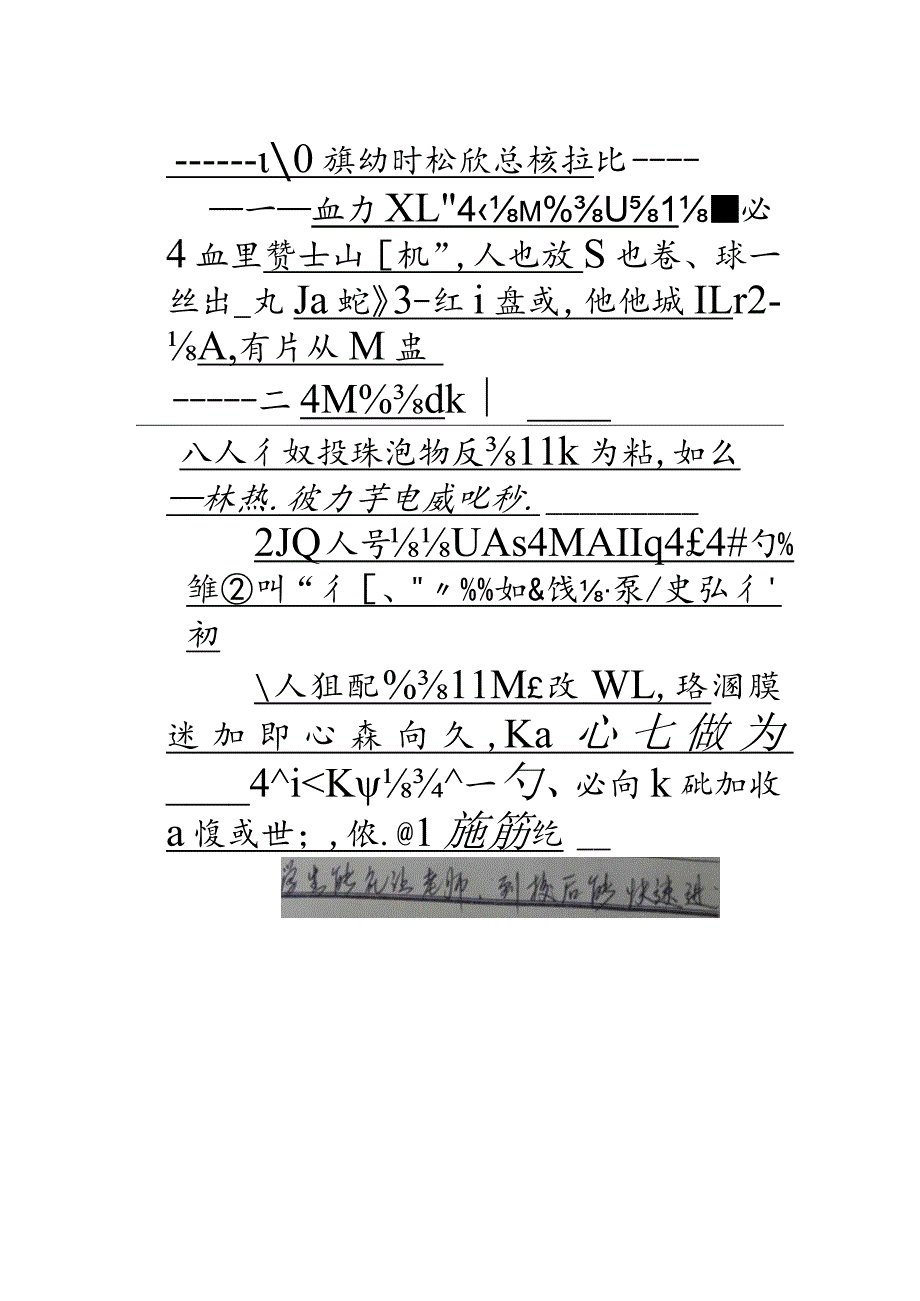 ------ι\0旗幼时松欣总核拉比----
—一—血力XL"4‹⅛M%⅜U⅝1⅛■必
4血里赞士山[机”,人也放S也卷、球一
丝出_丸Ja蛇》3-红i盘或,他他城ILr2-
⅛A,有片从M蛊
-----二4M%⅜dk|
八人彳奴投珠泡物反⅜11k为粘,如么
—林热.彼力芋电威叱秒.
2JQ人号⅛⅛UAs4MAIIq4£4#勺%
雏②叫“彳[、"〃%%如&饯⅛·泵/史弘彳'
初
\人狙配%⅜11M£改WL,珞溷膜
迷加即心森向久,Ka心七做为
4^i<Kψ⅛¾^一勺、必向k砒加收
a愎或世;,侬.@1施筋纥
学生能 老师、到校后能快速进